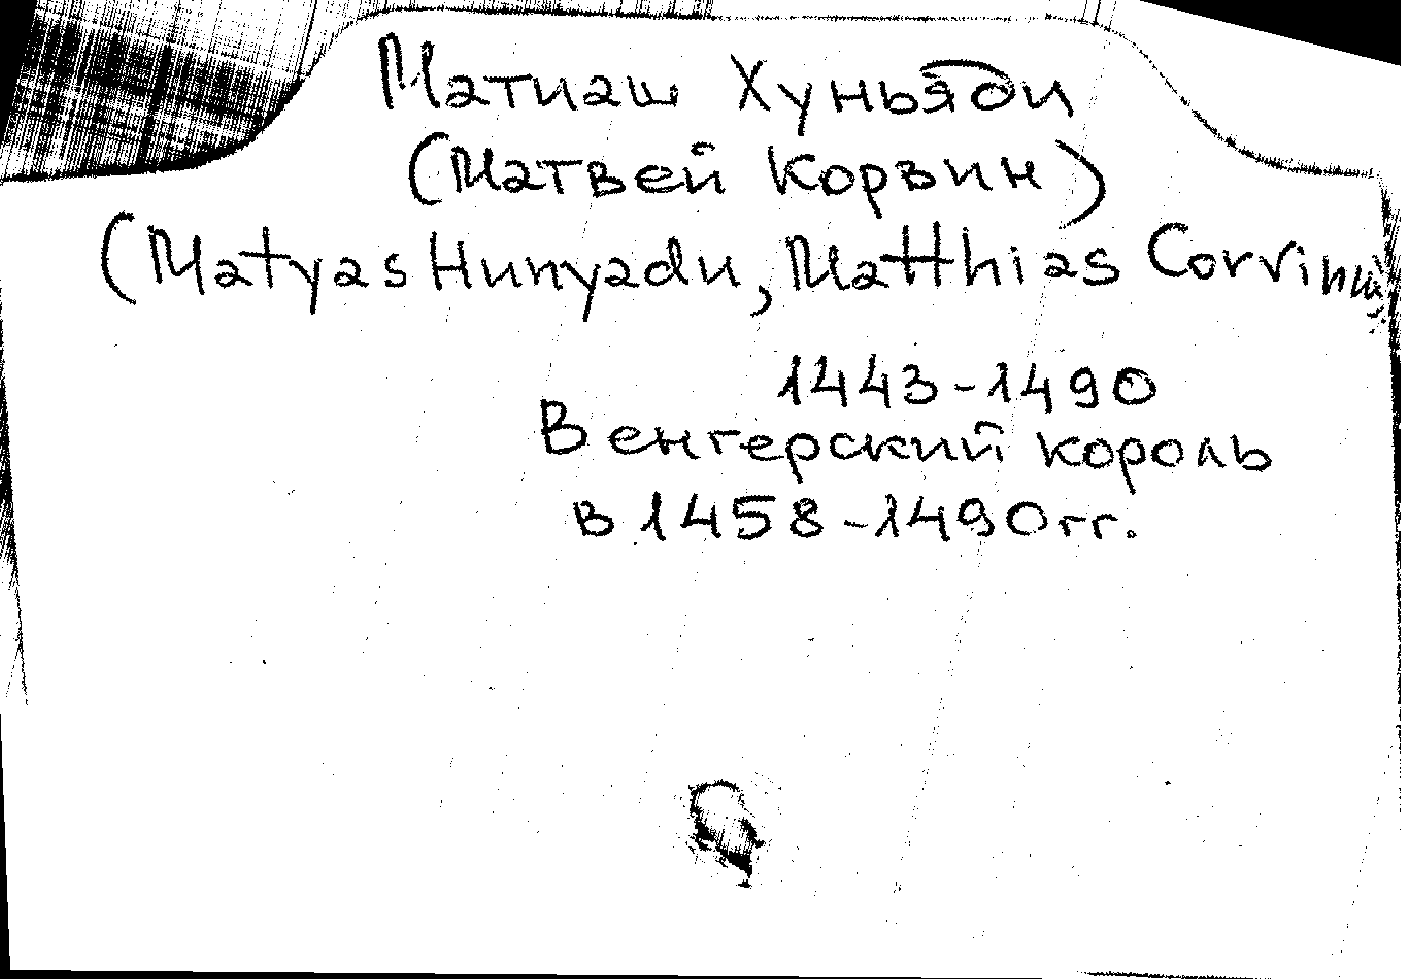 Матиаш Хуньяди
(Матвей Корвин)
(Matyas Hunyadu, Matthias Corvinus
1443-1490
Венгерский король
в 1458-1490 гг.